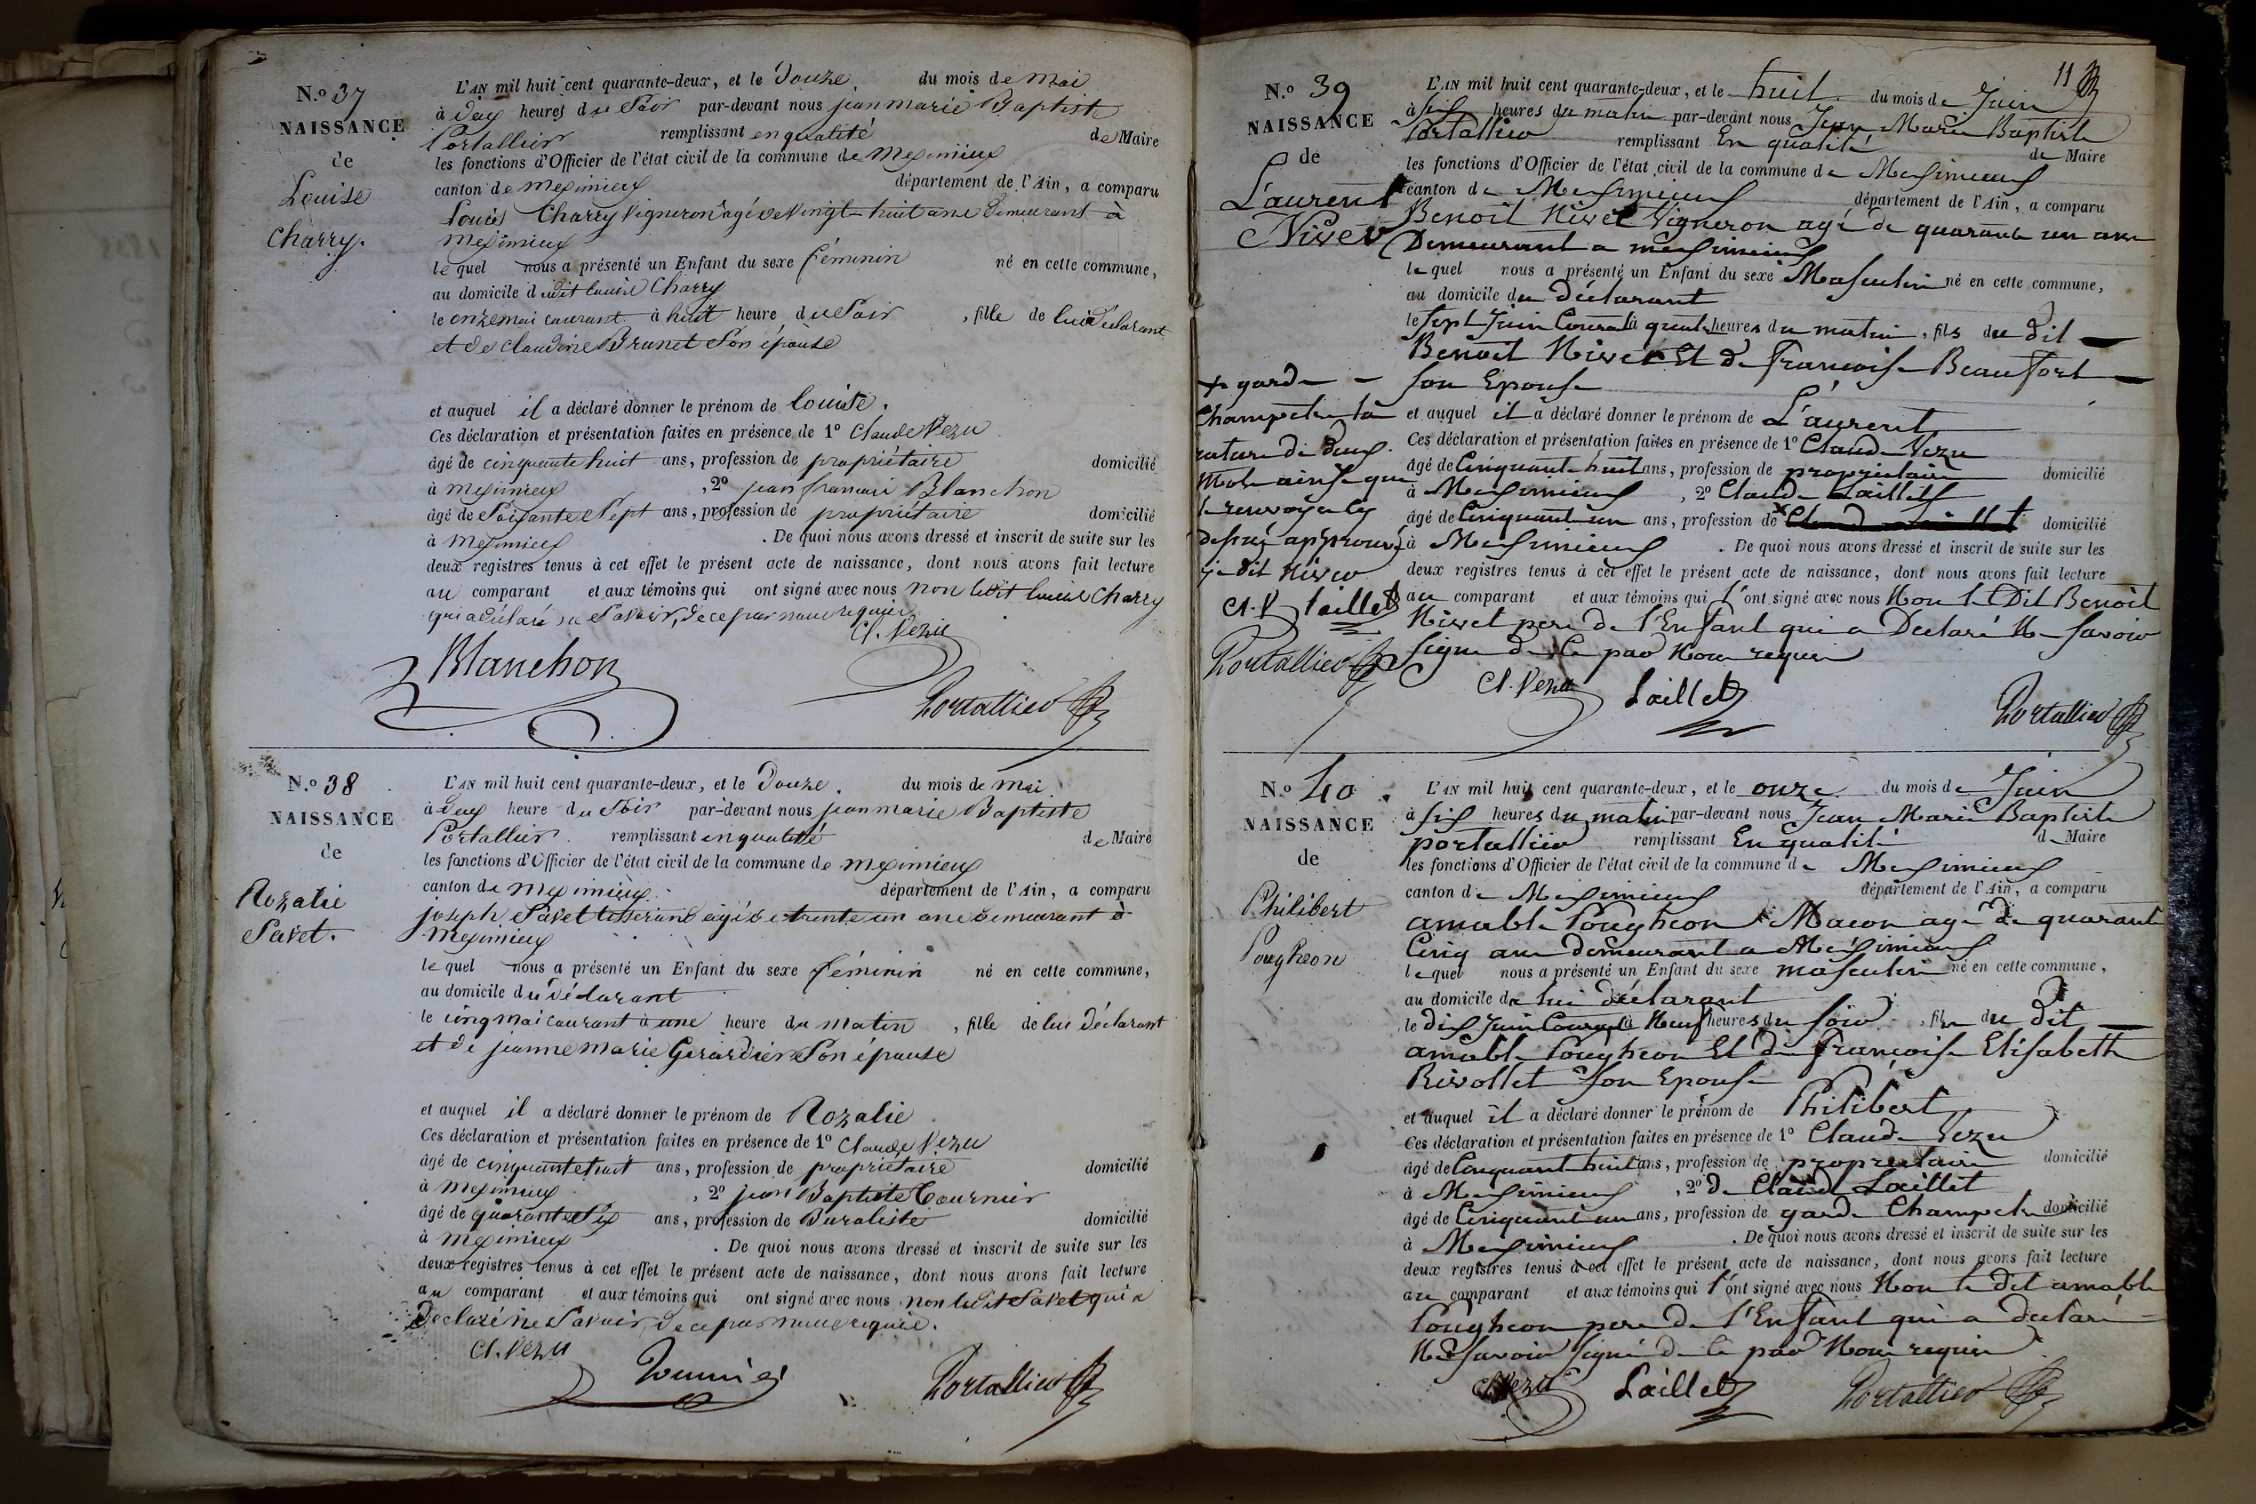 N.º 37
NAISSANCE
de
Louise
Charry.
L'AN mil huit cent quarante-deux, et le Douze. du mois de mai
à deux heures du Soir par-devant nous jean marie Baptiste
Portallier remplissant en qualité de Maire
les fonctions d'Officier de l'état civil de la commune de meximieux
canton de meximieux département de l'Ain, a comparu
Louis Charry Vigneron agé de Vingt-huit ans Demeurant à
meximieux
le quel nous a présenté un Enfant du sexe féminin né en cette commune,
au domicile dudit Louis Charry
le onze mai courant à huit heure du Soir, fille de lui Déclarant
et de Claudine Brunet Son épouse
et auquel il a déclaré donner le prénom de Louise.
Ces déclaration et présentation faites en présence de 1º Claude Vezu
âgé de cinquante huit ans, profession de propriétaire domicilié
à meximieux, 2º jean francois Blanchon
âgé de Soixante Sept ans, profession de propriétaire domicilié
à meximieux. De quoi nous avons dressé et inscrit de suite sur les
deux registres tenus à cet effet le présent acte de naissance, dont nous avons fait lecture
au comparant et aux témoins qui ont signé avec nous non ledit Louis Charry
qui a déclaré ne Savoir, de ce par nous requis
Cl. Vezu
Blanchon
Portallier
N.º 38
NAISSANCE
de
Rozalie
Savet.
L'AN mil huit cent quarante-deux, et le Douze. du mois de mai
à deux heure du Soir par-devant nous jean marie Baptiste
Portallier remplissant en qualité de Maire
les fonctions d'Officier de l'état civil de la commune de meximieux
canton de meximieux département de l'Ain, a comparu
joseph Savet tisserand agé de trente un ans demeurant à
meximieux
le quel nous a présenté un Enfant du sexe féminin né en cette commune,
au domicile du déclarant
le cinq mai courant à une heure du matin, fille de lui déclarant
et de jeanne marie Girardier Son épouse
et auquel il a déclaré donner le prénom de Rozalie
Ces déclaration et présentation faites en présence de 1º Claude Vezu
âgé de cinquante huit ans, profession de propriétaire domicilié
à meximieux, 2º jean Baptiste Tournier
âgé de quarante Six ans, profession de Buraliste domicilié
à meximieux. De quoi nous avons dressé et inscrit de suite sur les
deux registres tenus à cet effet le présent acte de naissance, dont nous avons fait lecture
au comparant et aux témoins qui ont signé avec nous non ledit Savet qui a
Déclaré ne Savoir, de ce par nous requis.
Cl. Vezu
Tournier
Portallier
11
N.º 39
NAISSANCE
de
Laurent
Nivet
L'AN mil huit cent quarante-deux, et le huit du mois de Juin
à six heures du matin par-devant nous Jean Marie Baptiste
Portallier remplissant En qualité de Maire
les fonctions d'Officier de l'état civil de la commune de Meximieux
canton de Meximieux département de l'Ain, a comparu
Benoit Nivet Vigneron agé de quarante un ans
Demeurant a meximieux
le quel nous a présenté un Enfant du sexe Masculin né en cette commune,
au domicile du Déclarant
le Sept Juin Courant à quatre heures du matin, fils du dit
Benoit Nivet Et de francoise Beaufort
son Epouse
et auquel il a déclaré donner le prénom de Laurent
Ces déclaration et présentation faites en présence de 1º Claude Vezu
âgé de Cinquante huit ans, profession de propriétaire domicilié
à Meximieux, 2º Claude Laillet
âgé de Cinquante un ans, profession de x domicilié
à Meximieux. De quoi nous avons dressé et inscrit de suite sur les
deux registres tenus à cet effet le présent acte de naissance, dont nous avons fait lecture
au comparant et aux témoins qui l'ont signé avec nous Non le Dit Benoit
Nivet pere de l'Enfant qui a Declaré Ne Savoir
signe de ce par Nous requis
x garde
Champetre la
rature de deux
mots ainsi que
le renvoye cy
dessus approuvé
Cl. V Laillet
Portallier
Cl. Vezu
Laillet
Portallier
N.º 40
NAISSANCE
de
Philibert
Pougheon
L'AN mil huit cent quarante-deux, et le onze du mois de Juin
à six heures du matin par-devant nous Jean Marie Baptiste
portallier remplissant En qualité de Maire
les fonctions d'Officier de l'état civil de la commune de Meximieux
canton de Meximieux département de l'Ain, a comparu
amable Pougheon Macon agé de quarante
Cinq ans demeurant a Meximieux
le quel nous a présenté un Enfant du sexe masculin né en cette commune,
au domicile de lui déclarant
le dix Juin Courant à Neuf heures du soir, fils du dit
amable Pougheon Et de francoise Elisabeth
Rivollet son Epouse
et auquel il a déclaré donner le prénom de Philibert
Ces déclaration et présentation faites en présence de 1º Claude Vezu
âgé de Cinquante huit ans, profession de propriétaire domicilié
à Meximieux, 2º de Claude Laillet
âgé de Cinquante un ans, profession de garde Champetre domicilié
à Meximieux. De quoi nous avons dressé et inscrit de suite sur les
deux registres tenus à cet effet le présent acte de naissance, dont nous avons fait lecture
au comparant et aux témoins qui l'ont signé avec nous Non le dit amable
Pougheon pere de l'Enfant qui a declaré
Ne savoir signé de ce par Nous requis
Cl Vezu
Laillet
Portallier